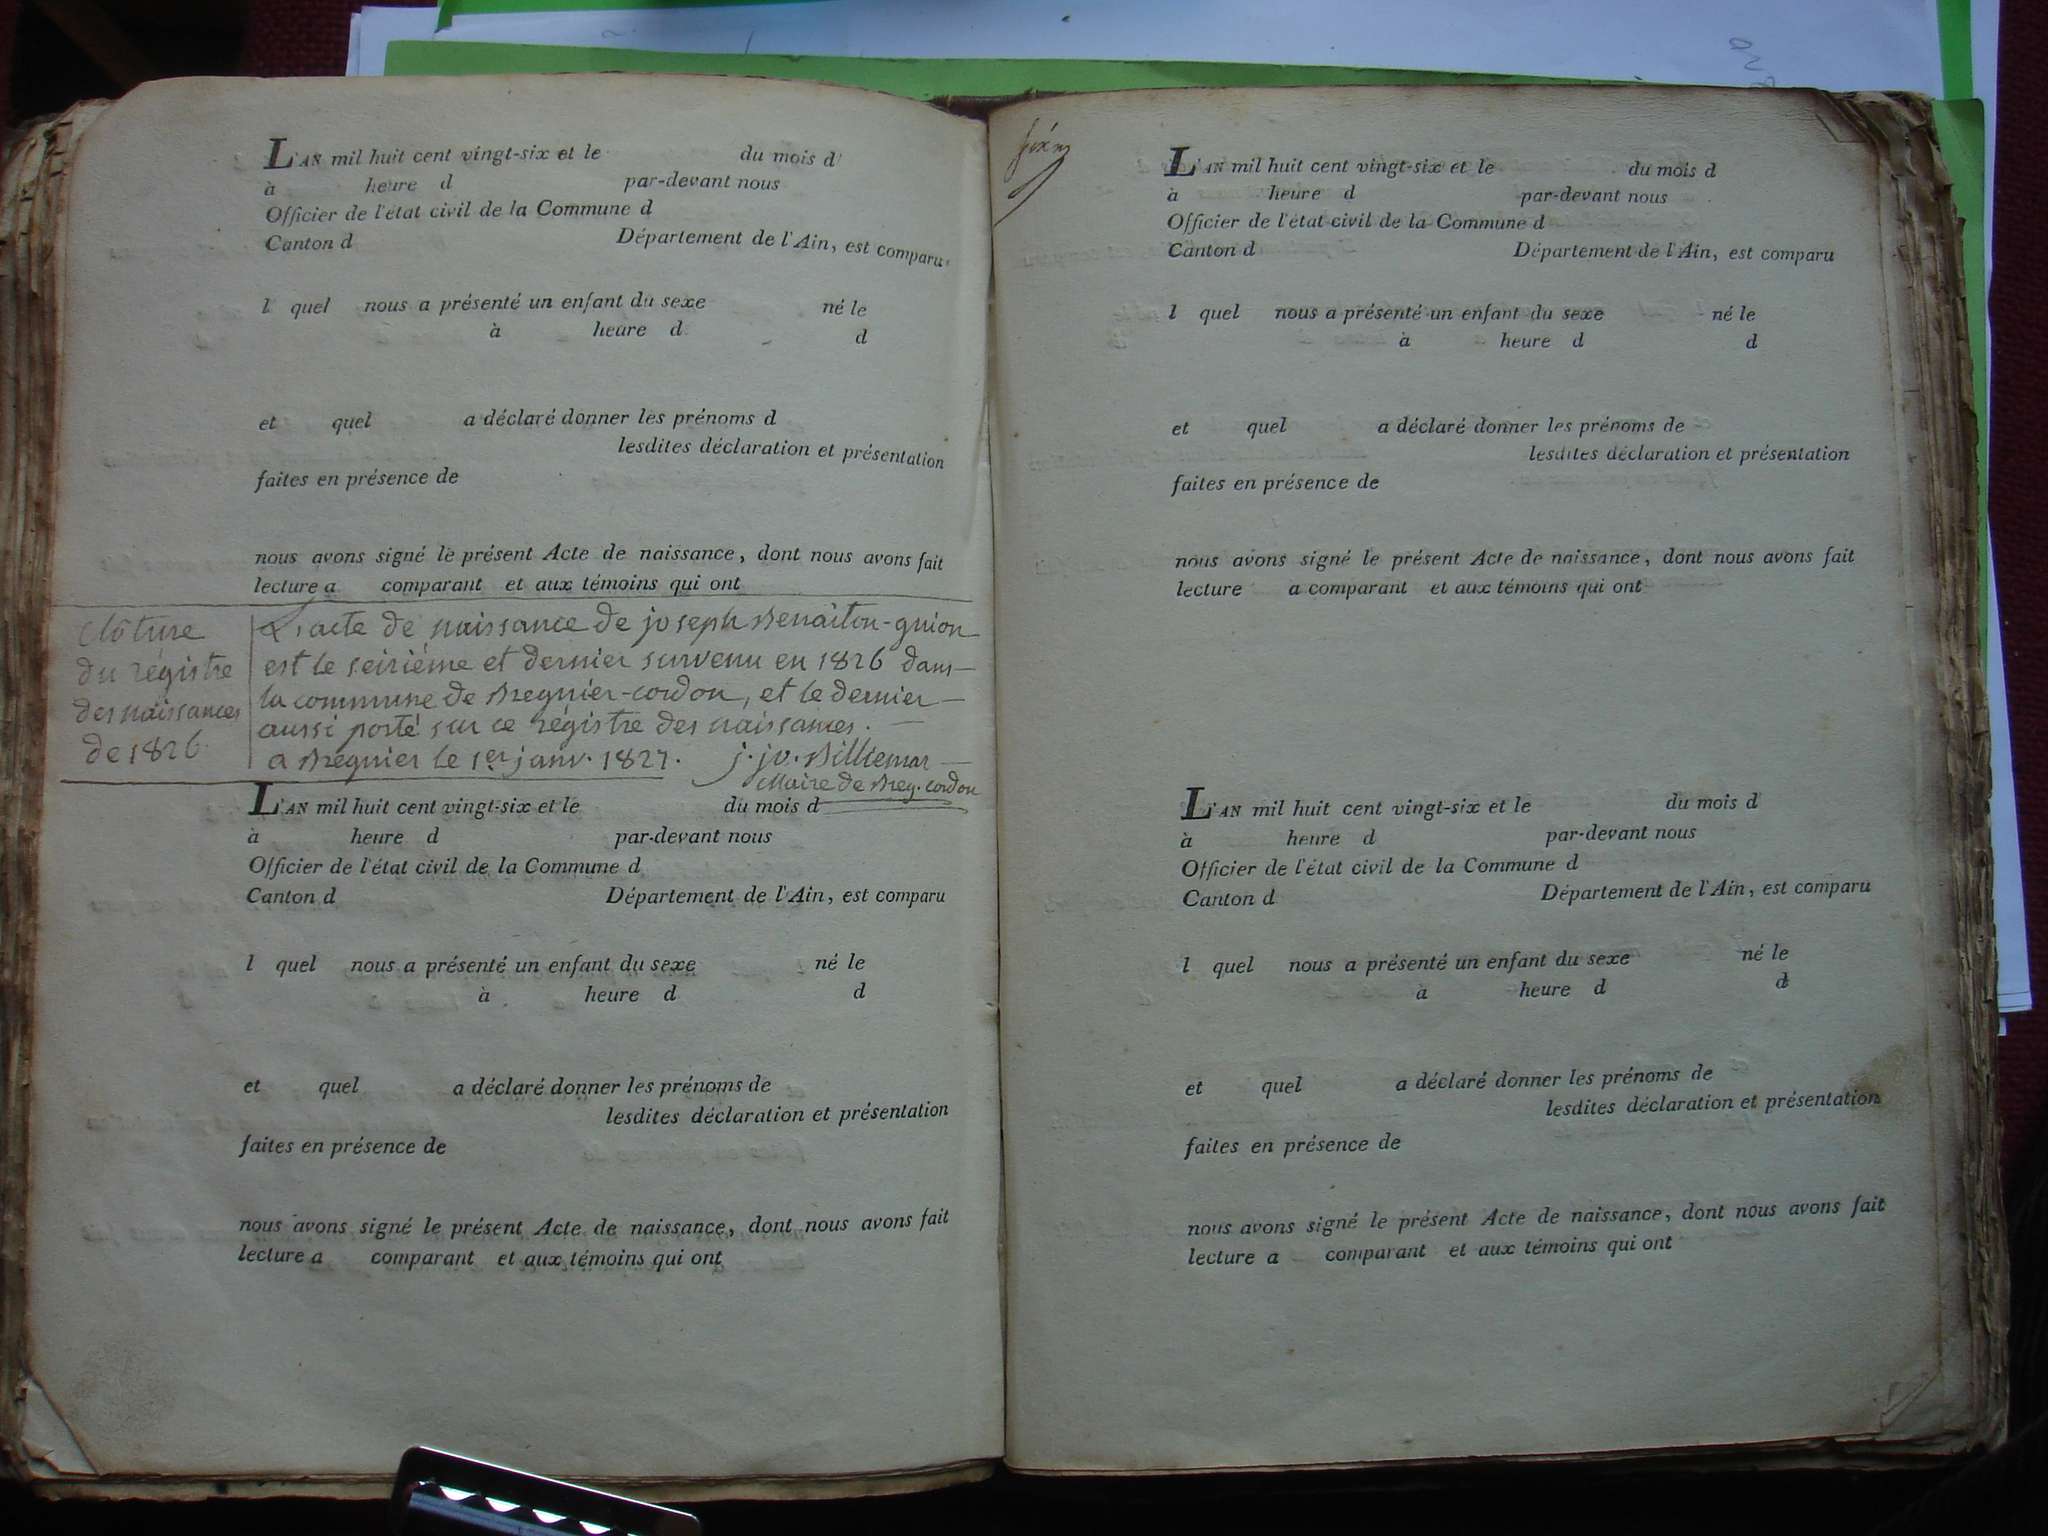 L'AN mil huit cent vingt-six et le du mois d
à heure d par-devant nous
Officier de l'état civil de la Commune d
Canton d Département de l'Ain, est comparu
l quel nous a présenté un enfant du sexe né le
à heure d d
et quel a déclaré donner les prénoms d
lesdites déclaration et présentation
faites en présence de
nous avons signé le présent Acte de naissance, dont nous avons fait
lecture a comparant et aux témoins qui ont
Clôture
du régistre
des naissances
de 1826
L'acte de naissance de joseph Benaiton-guion
est le seiziéme et dernier survenu en 1826 dans
la commune de Bregnier-cordon, et le dernier
aussi porté sur ce régistre des naissances.
a Bregnier le 1er janv. 1827. j. jo. Billiemar
Maire de Breg. cordon
L'AN mil huit cent vingt-six et le du mois d
à heure d par-devant nous
Officier de l'état civil de la Commune d
Canton d Département de l'Ain, est comparu
l quel nous a présenté un enfant du sexe né le
à heure d d
et quel a déclaré donner les prénoms de
lesdites déclaration et présentation
faites en présence de
nous avons signé le présent Acte de naissance, dont nous avons fait
lecture a comparant et aux témoins qui ont
L'AN mil huit cent vingt-six et le du mois d
à heure d par-devant nous
Officier de l'état civil de la Commune d
Canton d Département de l'Ain, est comparu
l quel nous a présenté un enfant du sexe né le
à heure d d
et quel a déclaré donner les prénoms de
lesdites déclaration et présentation
faites en présence de
nous avons signé le présent Acte de naissance, dont nous avons fait
lecture a comparant et aux témoins qui ont
L'AN mil huit cent vingt-six et le du mois d
à heure d par-devant nous
Officier de l'état civil de la Commune d
Canton d Département de l'Ain, est comparu
l quel nous a présenté un enfant du sexe né le
à heure d d
et quel a déclaré donner les prénoms de
lesdites déclaration et présentation
faites en présence de
nous avons signé le présent Acte de naissance, dont nous avons fait
lecture a comparant et aux témoins qui ont